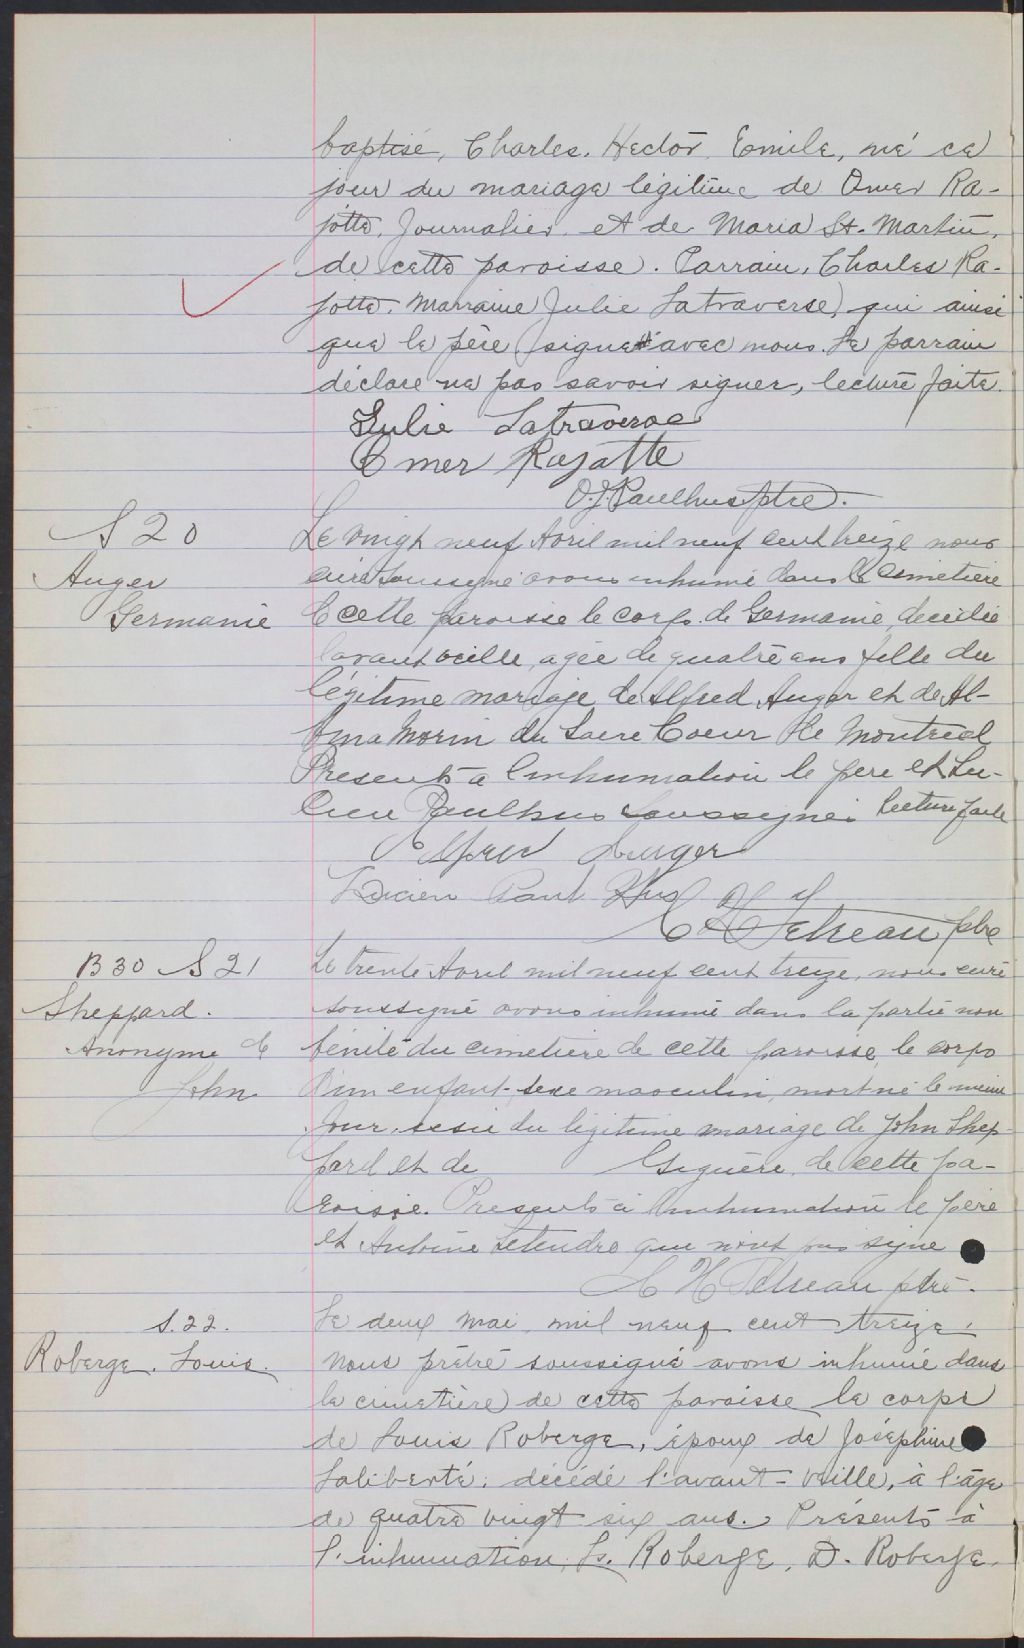 baptisé, Charles, Hector, Emile, né ce
jour du mariage légitime de Omer Ra-
jotte, Journalier, et de Maria St. Martin,
de cette paroisse. Parrain, Charles Ra-
jotte, Marraine Julie Latraverse, qui ainsi
que le père signe avec nous. Le parrain
déclare ne pas savoir signer, lecture faite.
Julie Latraverse
Omer Rajatte
O. J. Paulhus ptre.
S 20
Auger
Germanie
Le vingt neuf Avril mil neuf cent treize nous
curé soussigné avons inhumé dans le cimetière
de cette paroisse le corps de Germaine, decedée
l'avant veille, agée de quatre ans fille du
légitime mariage de Alfred Auger et de Al-
bina Morin du Sacré Coeur de Montreal
Presents à l'inhumation le père et Lu-
cien Paulhus soussignés lecture faite
Alfred Auger
Lucien Paul Hus
C H Tetreau ptre
B 30 S 21
Sheppard.
Anonyme de
John
Le trente Avril mil neuf cent treize, nous curé
soussigné avons inhumé dans la partie non
bénite du cimetière de cette paroisse, le corps
d'un enfant sexe masculin, mort né le même
jour, issu du légitime mariage de John Shep-
pard et de Giguère, de cette pa-
roisse. Presents à l'inhumation le père
et Antoine Letendre qui n'ont pas signé
C H Tetreau ptre.
S. 22.
Roberge, Louis.
Le deux Mai mil neuf cent treize,
nous prêtre soussigné avons inhumé dans
le cimetière de cette paroisse le corps
de Louis Roberge, époux de Joséphine
Laliberté, décédé l'avant-veille, à l'âge
de quatre vingt six ans. Présents à
l'inhumation, Ls. Roberge, D. Roberge,